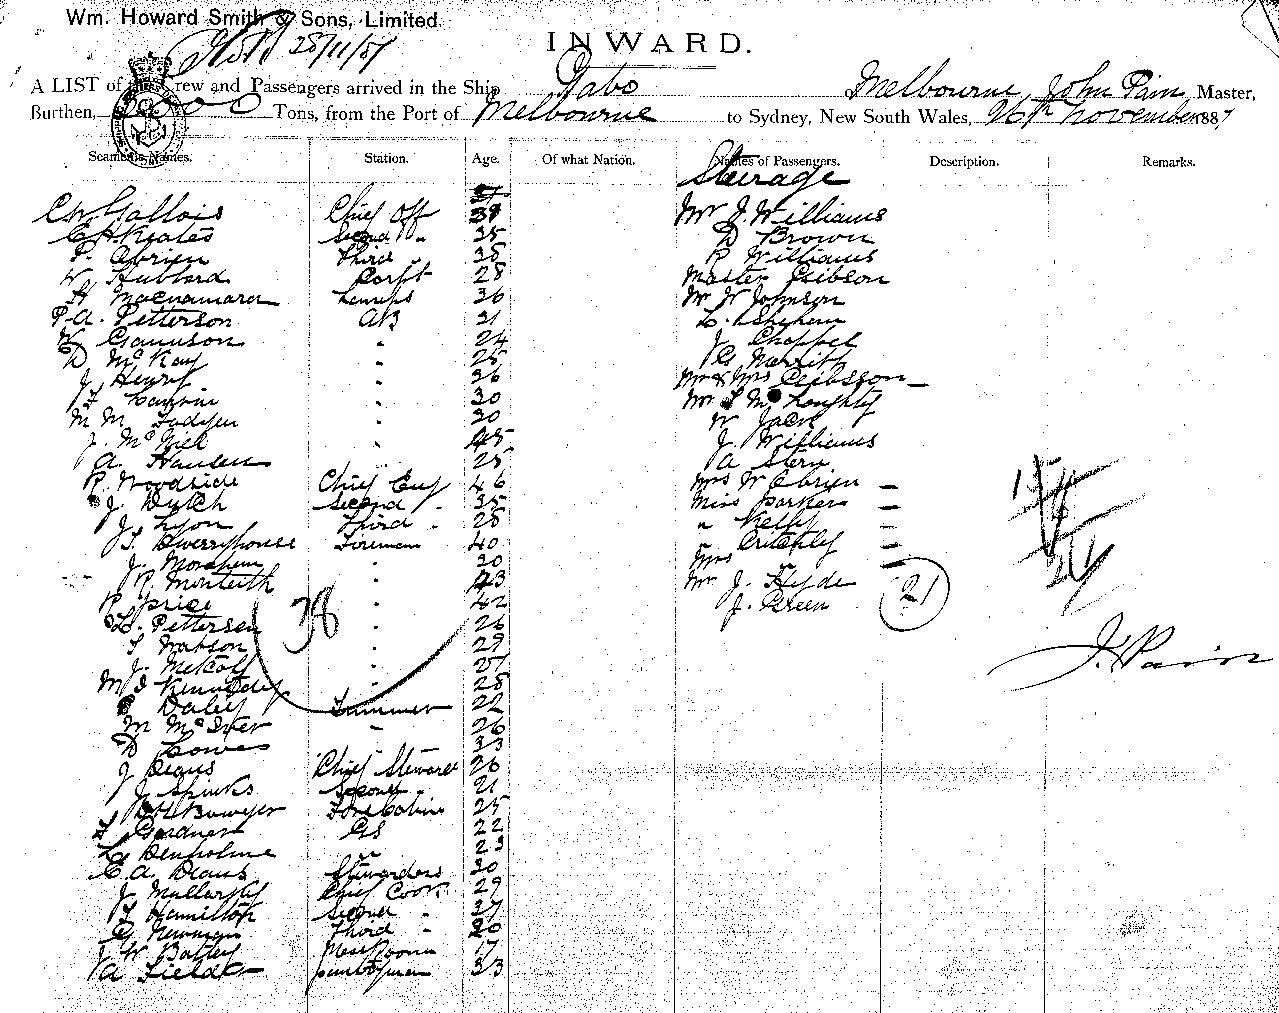 Wm. Howard Smith & Sons, Limited.
28/11/87
INWARD.
A LIST of the Crew and Passengers arrived in the Ship Gabo of Melbourne, John Pain Master,
Burthen, Tons, from the Port of Melbourne to Sydney, New South Wales, 26th November 1887
Seamen's Names. Station. Age. Of what Nation. Names of Passengers. Description. Remarks.
Steerage
C W Gallois Chief Off 39 Mr J. Williams
C H Keates Second " 35 D Brown
F. Obrien Third 35 P Williams
W. Hubbard Carpt 28 Master Gibson
H Macnamara Lamps 36 Mr W Johnson
P. A. Petterson AB 31
W Gannson " 24 J Chappel
D McKay " 25 G Merritt
J. Henry " 36 Mr & Mrs Gibsson
" 30 Mr McLoughty
M M Fadyen " 30 W Jack
J. McNiel " 45 J. Williams
A. Hansen 25 A Stern
R. Woodside Chief Eng 46 Mrs W Obrien
J. Dutch Second " 35 Miss Parker
J. Lyon Third " 28 " Kelly
J. Swerryhouse Firemen 40 " Critchly
J. 30 Mrs "
R. Monteith " 43 Mr J. Hyde
P. Price " 42 J. Green
21
L. Pettersen " 26
38
T Watson " 29
J. Metcalf " 27
J. Pain
M J Kennedy " 28
Daley Trimmer 22
M McIver " 26
D Cowes 33
J Deans Chief Steward 26
J. Spinks Second " 21
Bowyer Fore Cabin 25
H Gardner GS 22
L Denholme " 23
C. A. Deans Stewardess 30
J. Mullarky Chief Cook 29
T Hamilton Second " 37
G Newman Third " 20
J W Battey Mess Room 17
A Fielder Pantryman 33